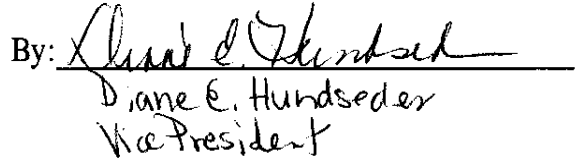 By: Diane E. Hundseder
Diane E. Hundseder
Vice President